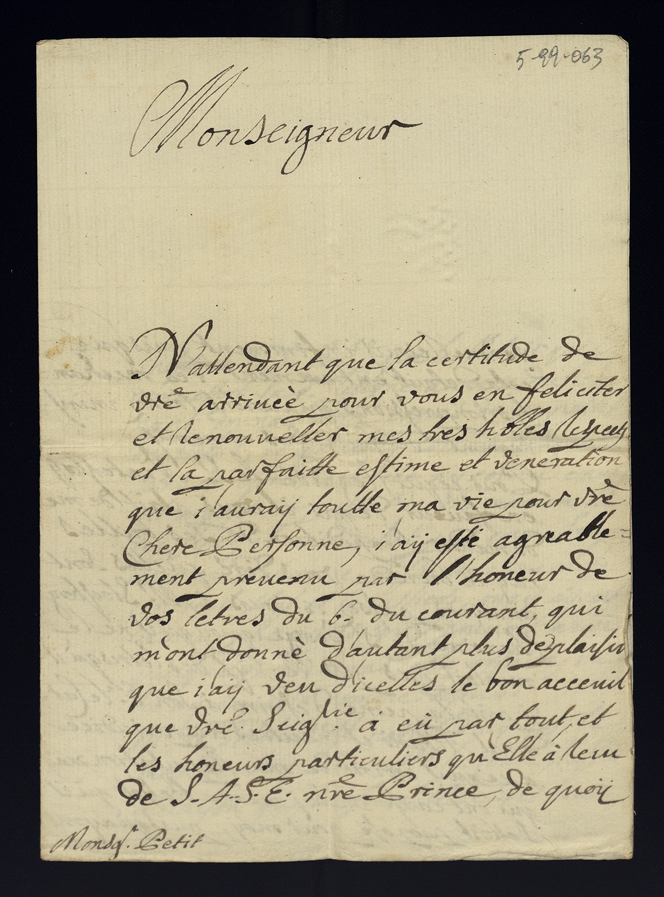 5-99-063
Monseigneur
N'attendant que la certitude de
vr̃e arriuèe pour vous en feliciter
et renouveller mes tres hũbles respects
et la parfaitte estime et veneration
que i'auray toutte ma vie pour vr̃e
Chere Personne, i'aij esté agreable=
ment prevenu par l'honeur de
vos letres du 6. du courant, qui
m'ont donnè d'autant plus de plaisir
que i'aij veu d'icelles le bon acceuil
que vr̃e Seig.rie à eü par tout, et
les honeurs particuliers qu'Elle à receu
de S. A. S. E. nr̃e Prince, de quoij
Monsg.r Petit